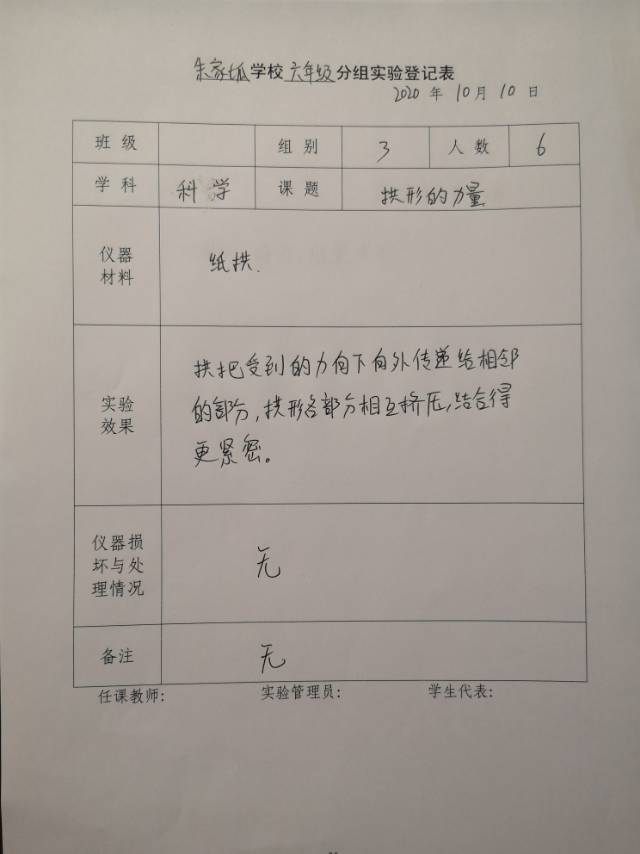 朱家坬学校六年级分组实验登记表
2020 年 10 月 10 日
班 级 组 别 3 人 数 6
学 科 科学 课 题 拱形的力量
仪器
材料
纸拱.
实验
效果
拱把受到的力向下向外传递给相邻
的部分,拱形各部分相互挤压,结合得
更紧密。
仪器损
坏与处
理情况
无
备注 无
任课教师: 实验管理员: 学生代表: